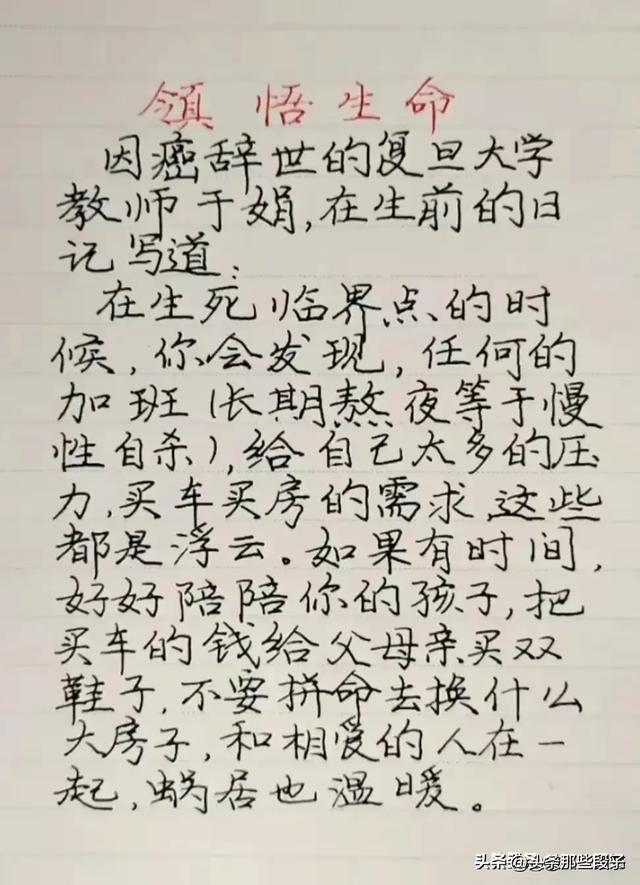 领悟生命
因癌辞世的复旦大学
教师于娟,在生前的日
记写道:
在生死临界点的时
候,你会发现,任何的
加班(长期熬夜等于慢
性自杀),给自己太多的压
力,买车买房的需求,这些
都是浮云。如果有时间,
好好陪陪你的孩子,把
买车的钱给父母亲买双
鞋子,不要拼命去换什么
大房子,和相爱的人在一
起,蜗居也温暖。
头条@那些段子